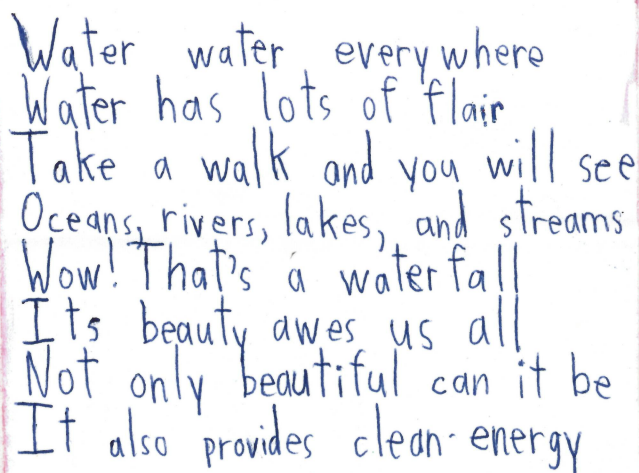 Water water everywhere
Water has lots of flair
Take a walk and you will see
Oceans, rivers, lakes, and streams
Wow! That's a waterfall
Its beauty awes us all
Not only beautiful can it be
It also provides clean energy